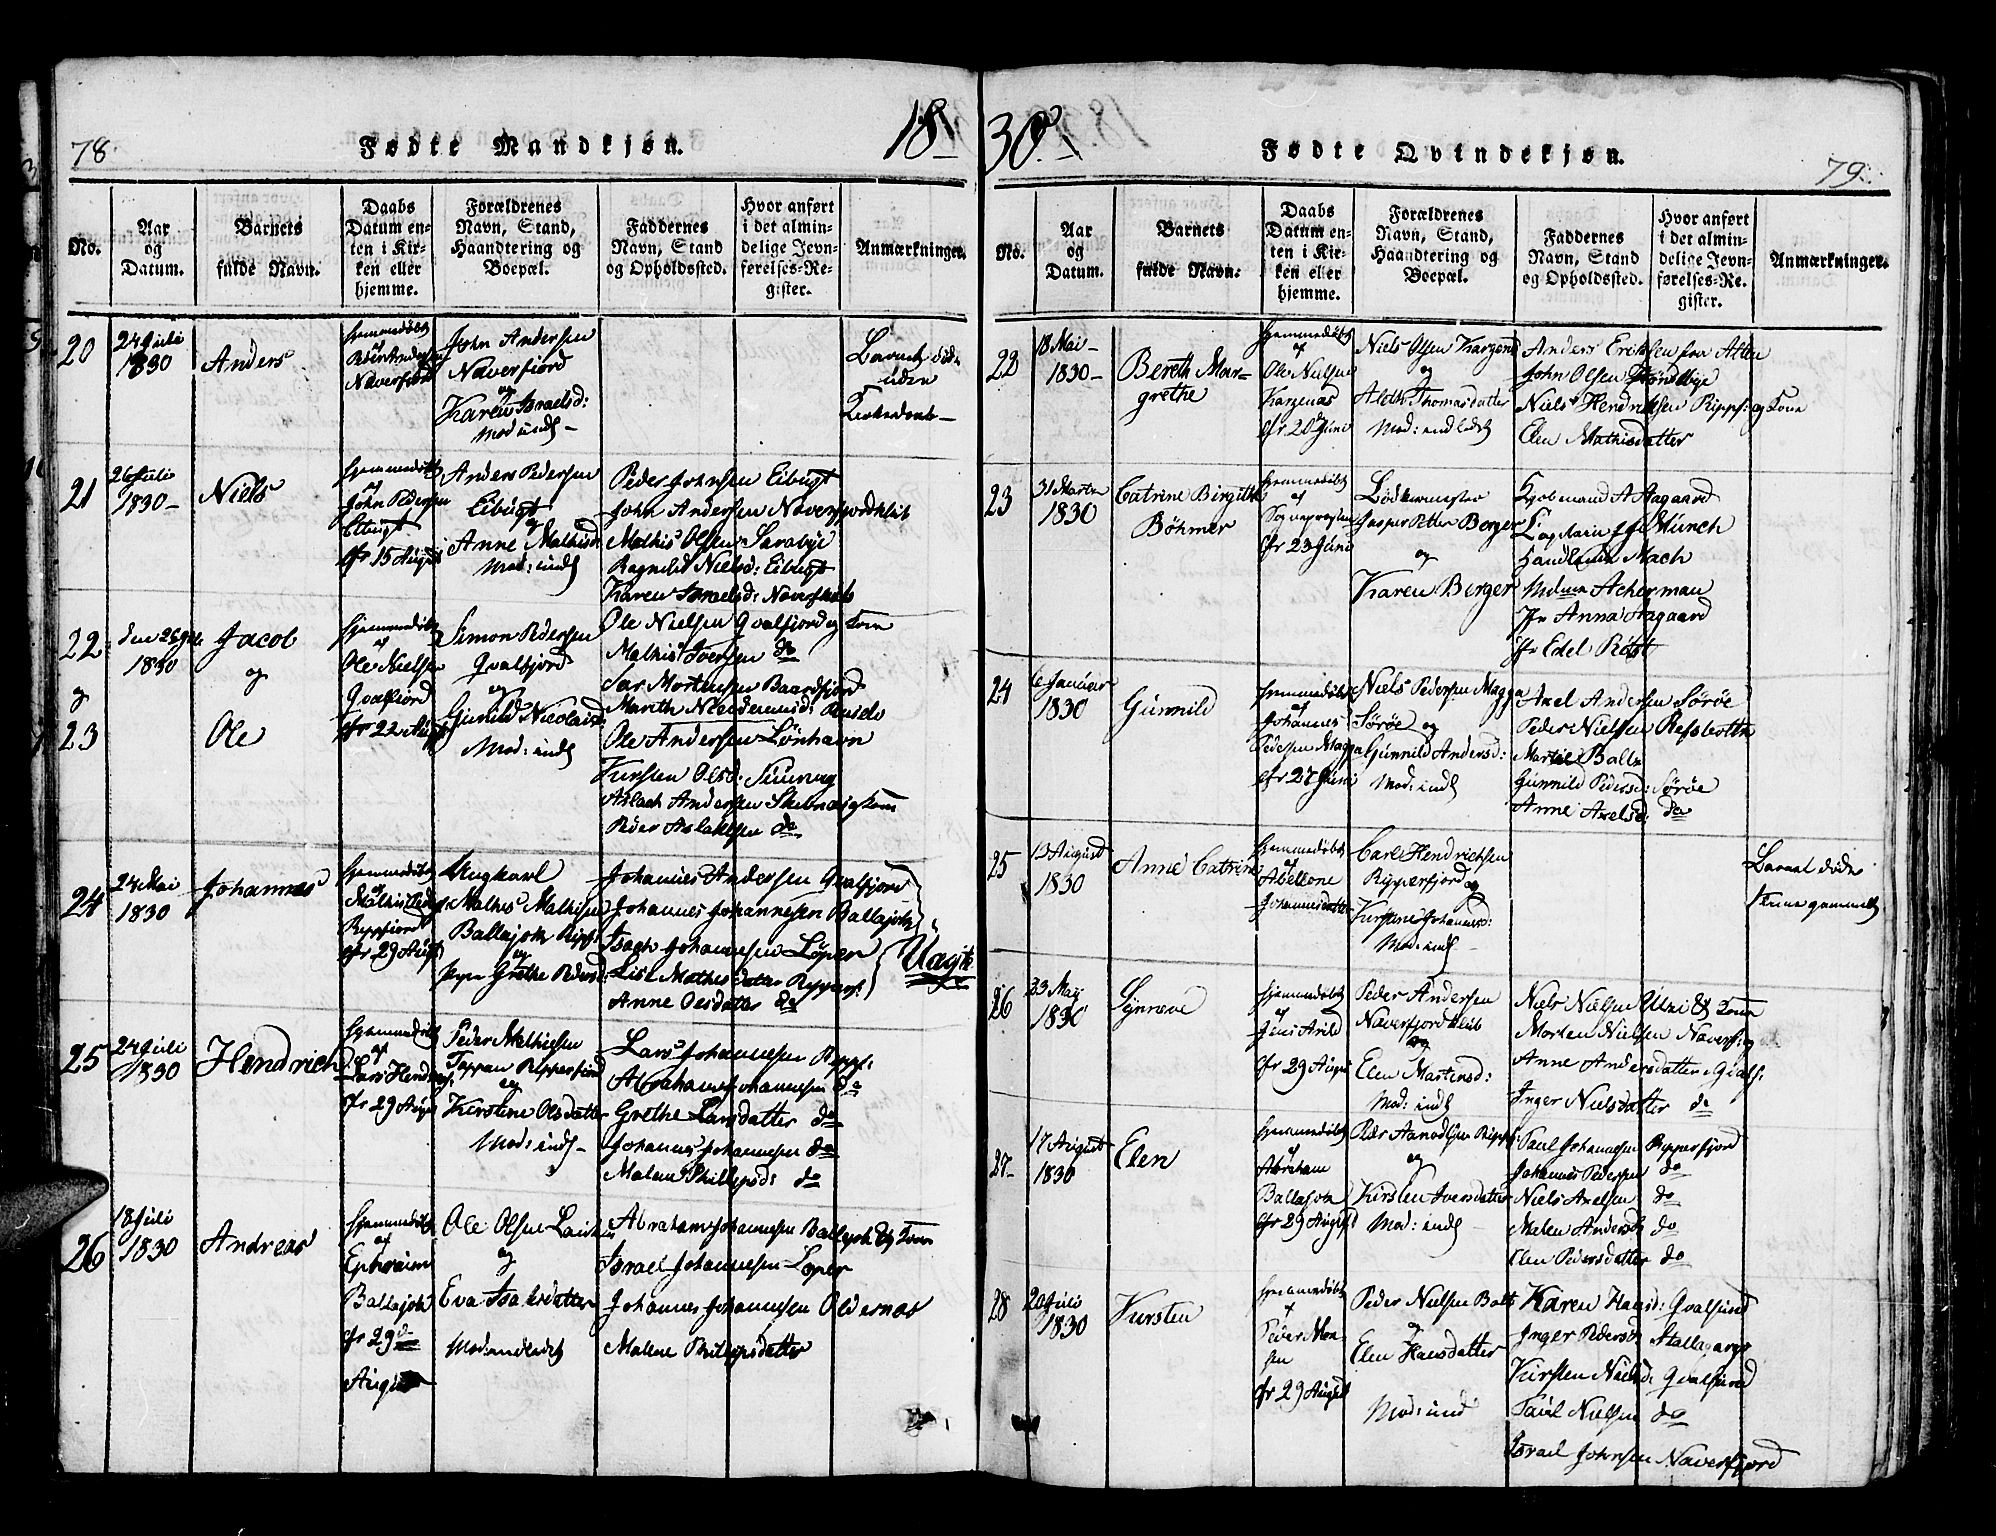 78.
Fødte Mandkjøn.
18
No.
Aar
og
Datum.
Barnets
fulde Navn.
Daabs
Datum en-
ten i Kir-
ken eller
hjemme.
Forældrenes
Navn, Stand,
Haandtering og
Boepæl.
Faddernes
Navn, Stand
og Opholdssted.
Hvor anført
i det almin-
delige Jevn-
førelses-Re-
gister.
Anmærkninger.
20
24 Juli
1830
Anders
hjemmedøbt
af
Peder Andersen
Naverfiord
John Andersen
Naverfiord
og
Karen Israelsd:
Mod: indl
Barnet døde
uden
Kirkedaab
21
26 Juli
1830
Niels
hjemmedøbt
af
John Pedersen
Eibugt
Cfr 15 August
Anders Pedersen
Eibugt
og
Anne Mathisd
Mod: indl
Peder Johnsen Eibugt
John Andersen Naverfjordklub
Mathis Olsen Sarabye
Ragnild Nielsd: Eibugt
Karen Israelsd: Naverfkl
22
og
23
den 26 Juli
1830
Jacob
og
Ole
hjemmedøbt
af
Ole Nielsen
Qvalfiord
Cfr 22 Aug
Simon Pedersen
Qvalfjord
og
Gunild Nicolaisd
Mod: indl
Ole Nielsen Qvalfjord og Kone
Mathis Iversen do
Mortensen Baardfjord
Mareth
Ole Andersen Lønhavn
Kirsten Olsd:
Aslach Andersen og Kone
Peder Aslaksen do
24
24 Mai
1830
Johannes
hjemmedøbt
af
Mathis
Rypfiord
Cfr 29 Aug
Ungkarl
Mathis Mathisen
Ballajok Ripf:
og
Pige Grethe Pedersd
Johannes Andersen Qvalfjord
Johannes Johannesen Ballajok
Isach Johannesen Løper
Lisa Mathisdatter Ripperf:
Anne Olsdatter do
Uægte
25
24 Juli
1830
Hendrich
hjemmedøbt
af
Lars Hend
Cfr 29 Aug
Peder Mathisen
Tappan Ripperfiord
og
Kirstine Olsdatter
Mod: indl
Lars Johannesen Ripf:
Abraham Johannesen do
Grethe Larsdatter do
Johannes Johannesen do
Malene Phillipsd: do
26
18 Juli
1830
Andreas
hjemmedøbt
af
Ephraim
Ballajok
Cfr 29de
August
Ole Olsen
og
Eva Isaksdatter
Mod: indledet
Abraham Johannesen Ballajok og Kone
Israel Johannesen Løper
Johannes Johannesen Oldernæs
Malene Philipsdatter
30.
Fødte Qvindekjøn.
79.
No.
Aar
og
Datum.
Barnets
fulde Navn.
Daabs
Datum en-
ten i Kir-
ken eller
hjemme.
Forældrenes
Navn, Stand,
Haandtering og
Boepæl.
Faddernes
Navn, Stand
og Opholdssted.
Hvor anført
i det almin-
delige Jevn-
førelses-Re-
gister.
Anmærkninger.
22
18 Mai
1830
Bereth Mar-
grethe
hjemmedøbt
af
Ole Nielsen
Kargenæs
Cfr 20 Juni
Niels Olsen Kargenæs
og
Aleth Thomasdatter
Mod: indledet
Anders Eriksen fra Alten
John Olsen
Niels Hendriksen Rippf: og Kone
Elen Mathisdatter
23
31 Marts
1830
Catrine Birgitte
Bøhmer
hjemmedøbt
af
Sognepræsten
Cfr 23 Juni
Bødkermester
Jasper Petter Berger
og
Karen Berger
Kjøbmand A Aagaard
Captain J J Münch
Handlende Mach
Madame Acherman
Jfr Anna Aagaard
Jfr Edel Røst
24
6 Januar
1830
Gunnild
hjemmedøbt
af
Johannes
Pedersen Magga
Cfr 27 Juni
Niels Pedersen Magga
Sørøe og
Gunnild Andersd:
Mod: indl
Axel Andersen Sørøe
Peder Nielsen Refsbotten
Balle
Gunnild Pedersd: Sørøe
Anne Axelsd: do
25
13 August
1830
Anne Catrine
hjemmedøbt
af
Abellone
Johannesdatter
Carl Hendrichsen
Ripperfjord og
Kirstine Johannesd:
Mod: indl
Barnet døde
gammelt
26
23 Maj
1830
Synneve
hjemmedøbt
af
Jens Arild
Cfr 29 August
Peder Andersen
Naverfjord klub
og
Elen Martensd:
Mod: indl
Niels Nielsen og Kone
Morten Nielsen Naverf: og
Anne Andersdatter Qvalf:
Inger Nielsdatter do
27
17 August
1830
Elen
hjemmedøbt
af
Abraham
Ballajok
Cfr 29 August
Peder Ripf:
og
Kirsten Iversdatter
Mod: indl
Paul Johannesen Ripperfjord
Johannes Pedersen do
Niels Axelsen do
Malen Andersd do
Elen Pedersdatter do
28
20 Juli
1830
Kirsten
hjemmedøbt
af
Peder Mon-
sen
Cfr 29 August
Peder Nielsen
og
Elen Hansdatter
Mod: ind
Karen Hansd: Qvalsund
Inger Pedersd
Kirsten Nielsd: Qvalsund
Paul Nielsen do
Israel Johnsen Naverfjord